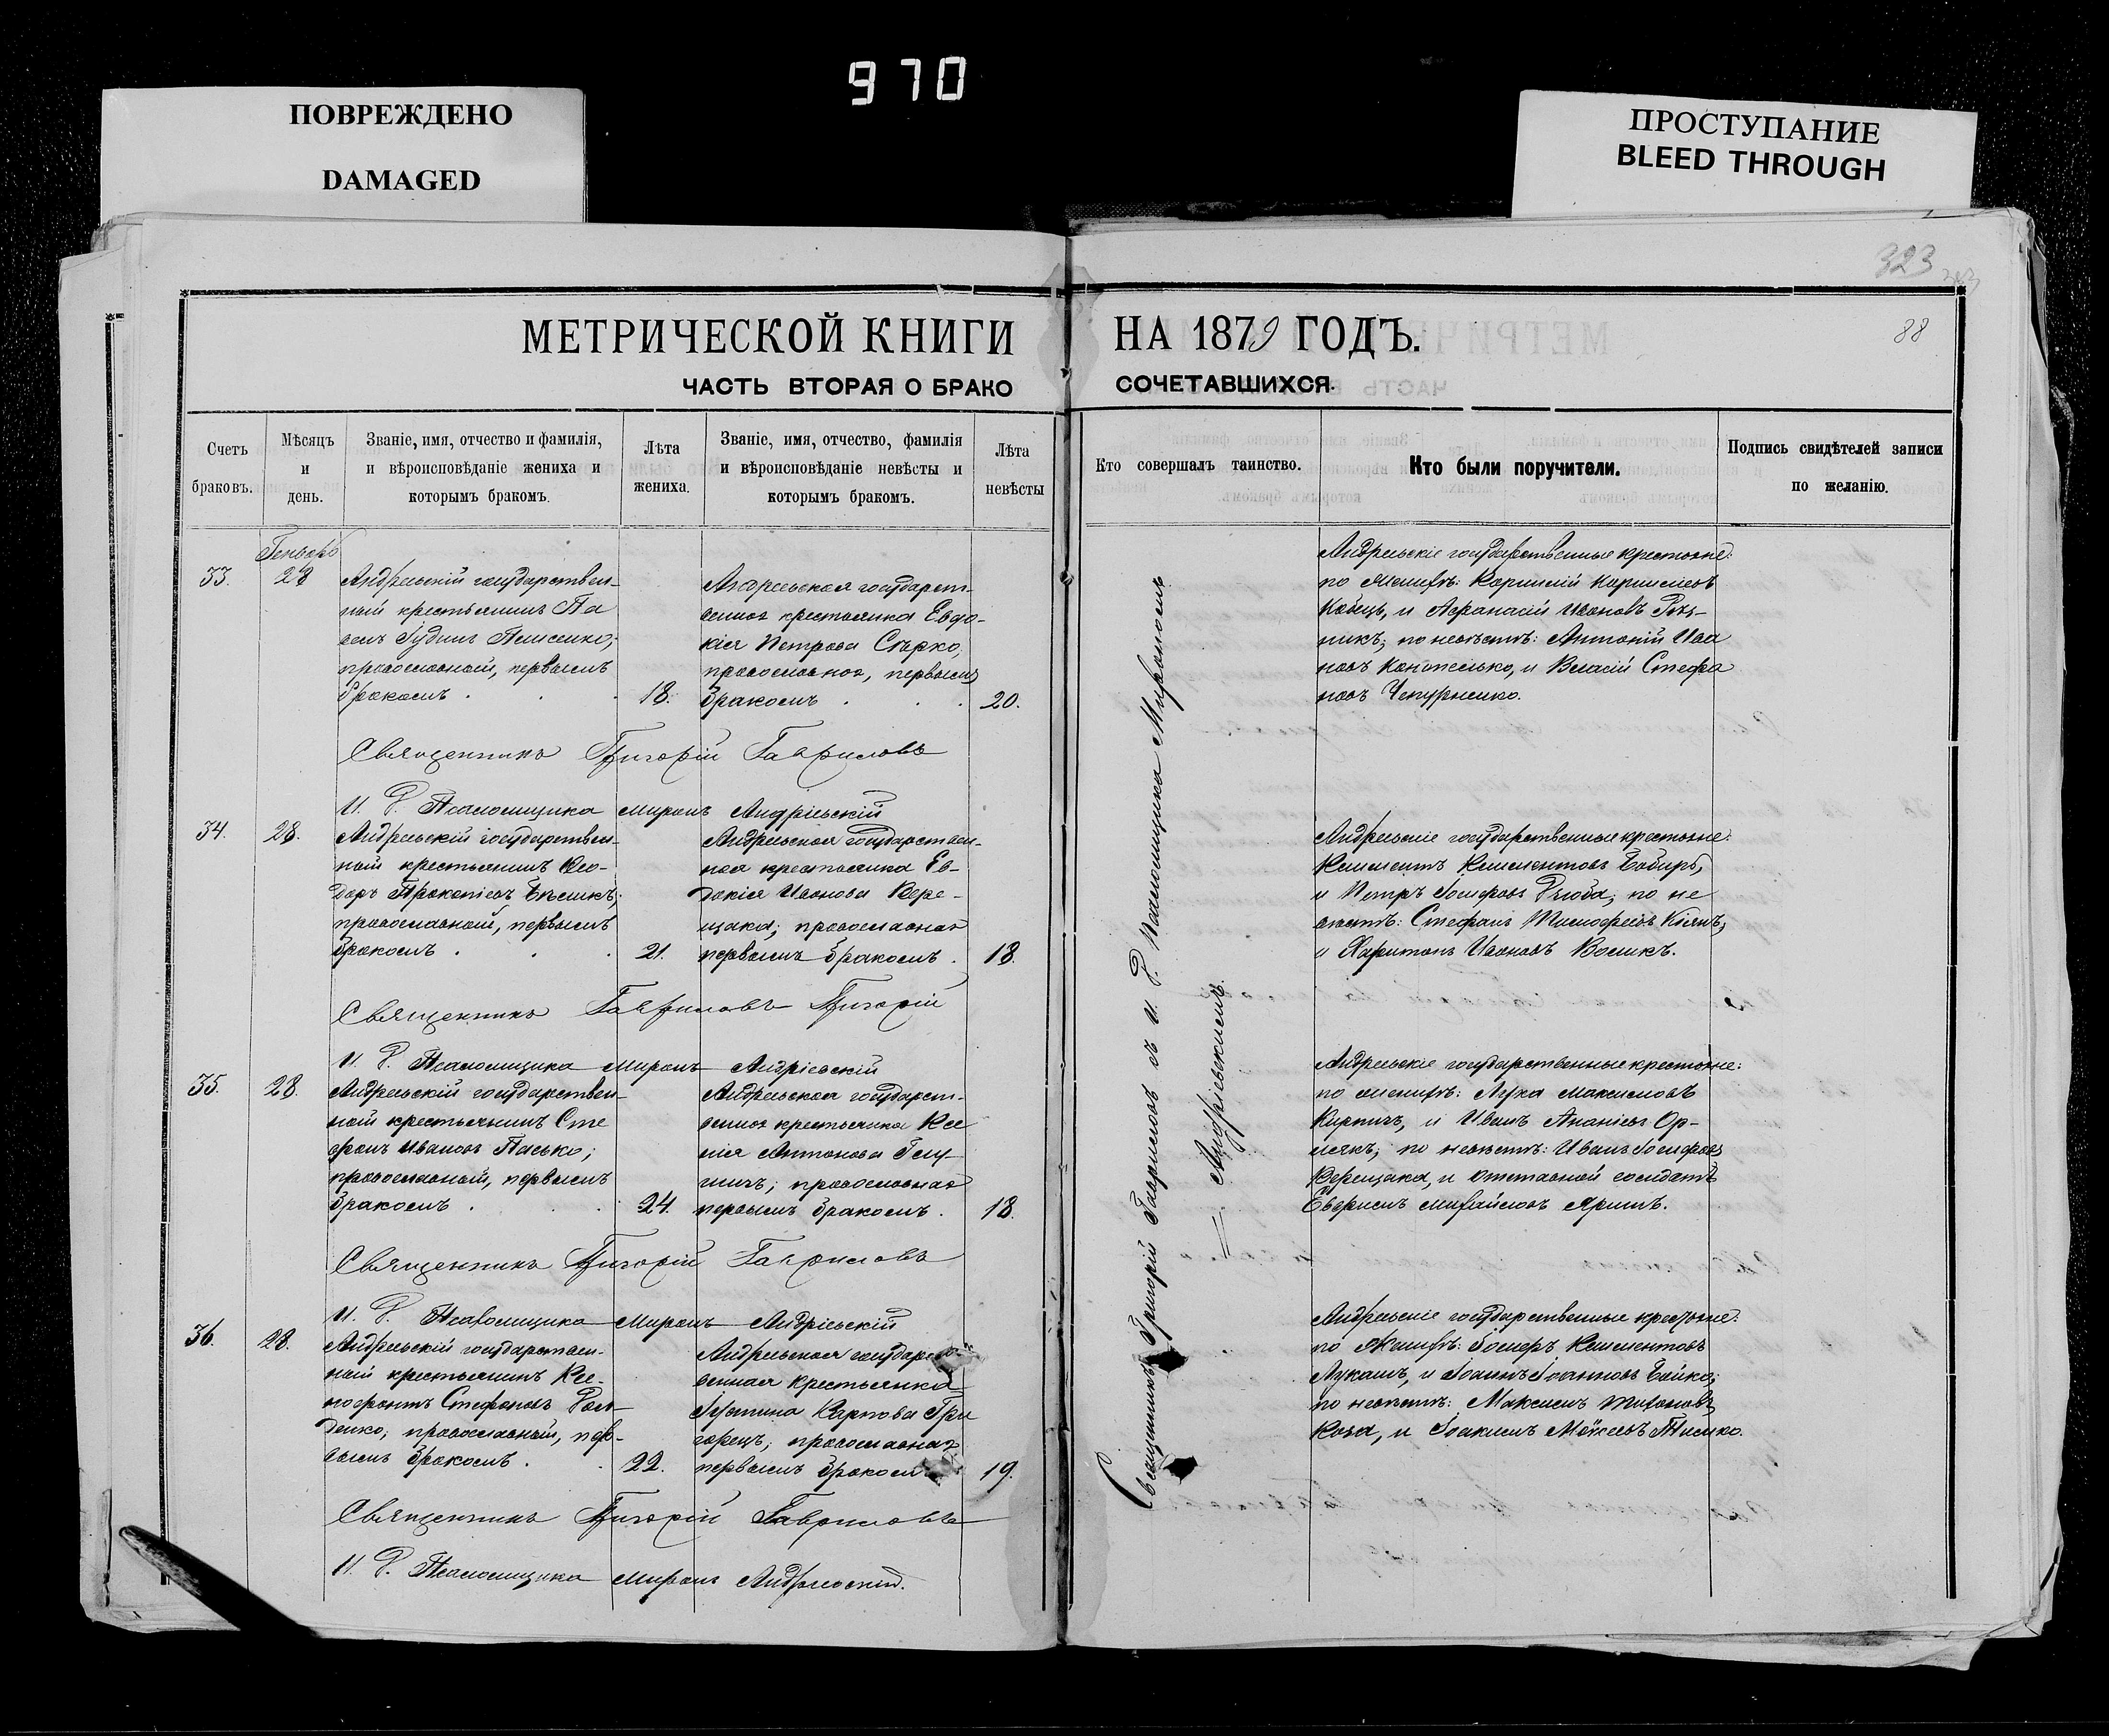 970
ПОВРЕЖДЕНО
DAMAGED
ПРОСТУПАНИЕ
BLEED THROUGH
323
88
МЕТРИЧЕСКОЙ КНИГИ
НА 1879 ГОДЪ.
ЧАСТЬ ВТОРАЯ О БРАКО
СОЧЕТАВШИХСЯ.
Счетъ
браковъ.
Мѣсяцъ
и
день.
Званіе, имя, отчество и фамилія,
и вѣроисповѣданіе жениха и
которымъ бракомъ.
Лѣта
жениха.
Званіе, имя, отчество, фамилія
и вѣроисповѣданіе невѣсты и
которымъ бракомъ.
Лѣта
невѣсты
Кто совершалъ таинство.
Кто были поручители.
Подпись свидѣтелей записи
по желанію.
Генварь
33.
28
Андреевскій государствен-
ный крестьянинъ Па
велъ Іудинъ
православный, первымъ
бракомъ
18.
Андреевская государст-
венная крестьянка Евдо-
кія Петрова Сѣрко,
православная, первымъ
бракомъ
20.
Андреевскіе государственные крестьяне:
по женихѣ: Корнилій Корнилиевъ
Кобецъ, и Афанасій Ивановъ
никъ; по невѣстѣ: Антоній Ива
новъ и Власій Стефа
новъ Чепурненко.
Священникъ Григорій Гавриловъ
И. Р. Псаломщика Миронъ Андріевскій
34.
28.
Андреевскій государствен-
ный крестьянинъ Ѳео-
доръ Прокопіевъ
православный, первымъ
бракомъ
21.
Андреевская государствен-
ная крестьянка Ев-
докія Иванова Вере-
щака; православная
первымъ бракомъ
18.
Андреевскіе государственные крестьяне:
Климентъ Климентовъ Бабыръ,
и Петръ Іосифовъ по не
вѣстѣ: Стефанъ Тимофеевъ
и Харитонъ Ивановъ Воликъ.
Священникъ Гавриловъ Григорій
И. Р. Псаломщика Миронъ Андріевскій
35.
28.
Андреевскій государствен-
ный крестьянинъ Сте
фанъ Ивановъ Пасько;
православный, первымъ
бракомъ
24.
Андреевская государст-
венная крестьянка Ксе
нія Антонова
православная
первымъ бракомъ
18.
Андреевскіе государственные крестьяне:
по женихѣ: Лука Максимовъ
Кирпичъ, и Иванъ Ананіевъ
по невѣстѣ: Иванъ Іосифовъ
Верещака, и отставной солдатъ
Ефремъ Михайловъ Яришъ.
Священникъ Григорій Гавриловъ
И. Р. Псаломщика Миронъ Андріевскій
36.
28.
Андреевскій государствен-
ный крестьянинъ Ксе-
нофонтъ Стефановъ
православный, пер-
вымъ бракомъ
22.
Андреевская государст-
венная крестьянка
Іустина Карпова Гри
горецъ; православная
первымъ бракомъ
19.
Андреевскіе государственные крестьяне:
по женихѣ: Іосифъ Климентовъ
Лукашъ, и Іоаннъ Іоанновъ Бойко;
по невѣстѣ: Максимъ Тихоновъ
Коза, и Іоакимъ
Священникъ Григорій Гавриловъ
И. Р. Псаломщика Миронъ Андріевскій.
Священникъ Григорій Гавриловъ съ И. Р. Псаломщика Мирономъ
Андріевскимъ.